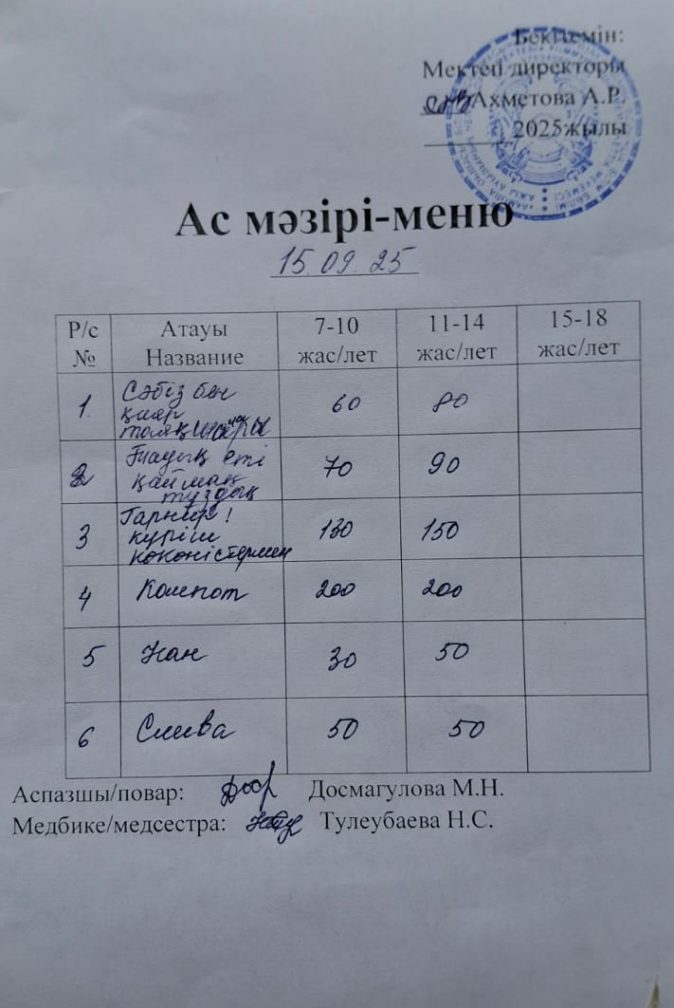 Бекітемін:
Мектеп директоры
Ахметова А.Р.
2025жылы
Ас мәзірі-меню
15.09.25
Р/с
№
Атауы
Название
7-10
жас/лет
11-14
жас/лет
15-18
жас/лет
1
Сәбіз бен
қияр
60
80
2
еті
қаймақ
тұздық
70
90
3
Гарнир!
күріш
көкөністермен
130
150
4
Компот
200
200
5
Нан
30
50
6
Слива
50
50
Аспазшы/повар: Досмагулова М.Н.
Медбике/медсестра: Тулеубаева Н.С.